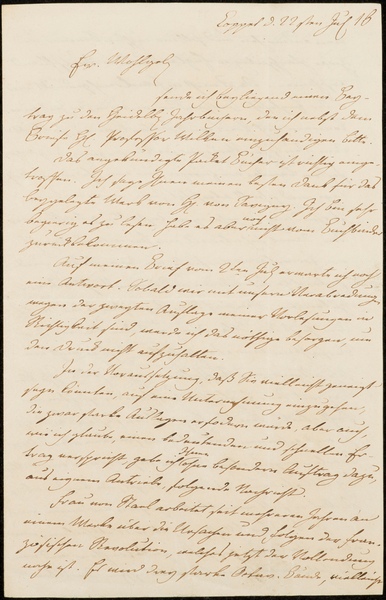 Coppet d. 22sten Jul 16
Ew. Wohlgeb.
sende ich beyliegend einen Bey-
trag zu den Heidelb. Jahrbüchern, den ich nebst dem
Briefe H. Professor Wilken einzuhändigen bitte.
Das angekündigte Paket Bücher ist richtig einge-
troffen. Ich sage Ihnen meinen besten Dank für das
beygelegte Werk von H. von Savigny. Ich bin sehr
begierig es zu lesen, habe es aber noch nicht vom Buchbinder
zurückbekommen.
Auf meinen Brief vom 2ten Jul erwarte ich noch
eine Antwort. Sobald wir mit unsrer Verabredung
wegen der zweyten Auflage meiner Vorlesungen in
Richtigkeit sind, werde ich das nöthige besorgen, um
den Druck nicht aufzuhalten.
In der Voraussetzung, daß Sie vielleicht geneigt
seyn könnten, auf eine Unternehmung einzugehen,
die zwar starke Auslagen erfodern würde, aber auch,
wie ich glaube, einen bedeutenden und schnellen Er-
trag verspricht, gebe ich Ihnen ohne besondern Auftrag dazu,
aus eignem Antriebe, folgende Nachricht.
Frau von Stael arbeitet seit mehreren Jahren an
einem Werke über die Ursachen und Folgen der fran-
zösischen Revolution, welches jetzt der Vollendung
nahe ist. Es wird drey starke Octav-Bände, vielleicht